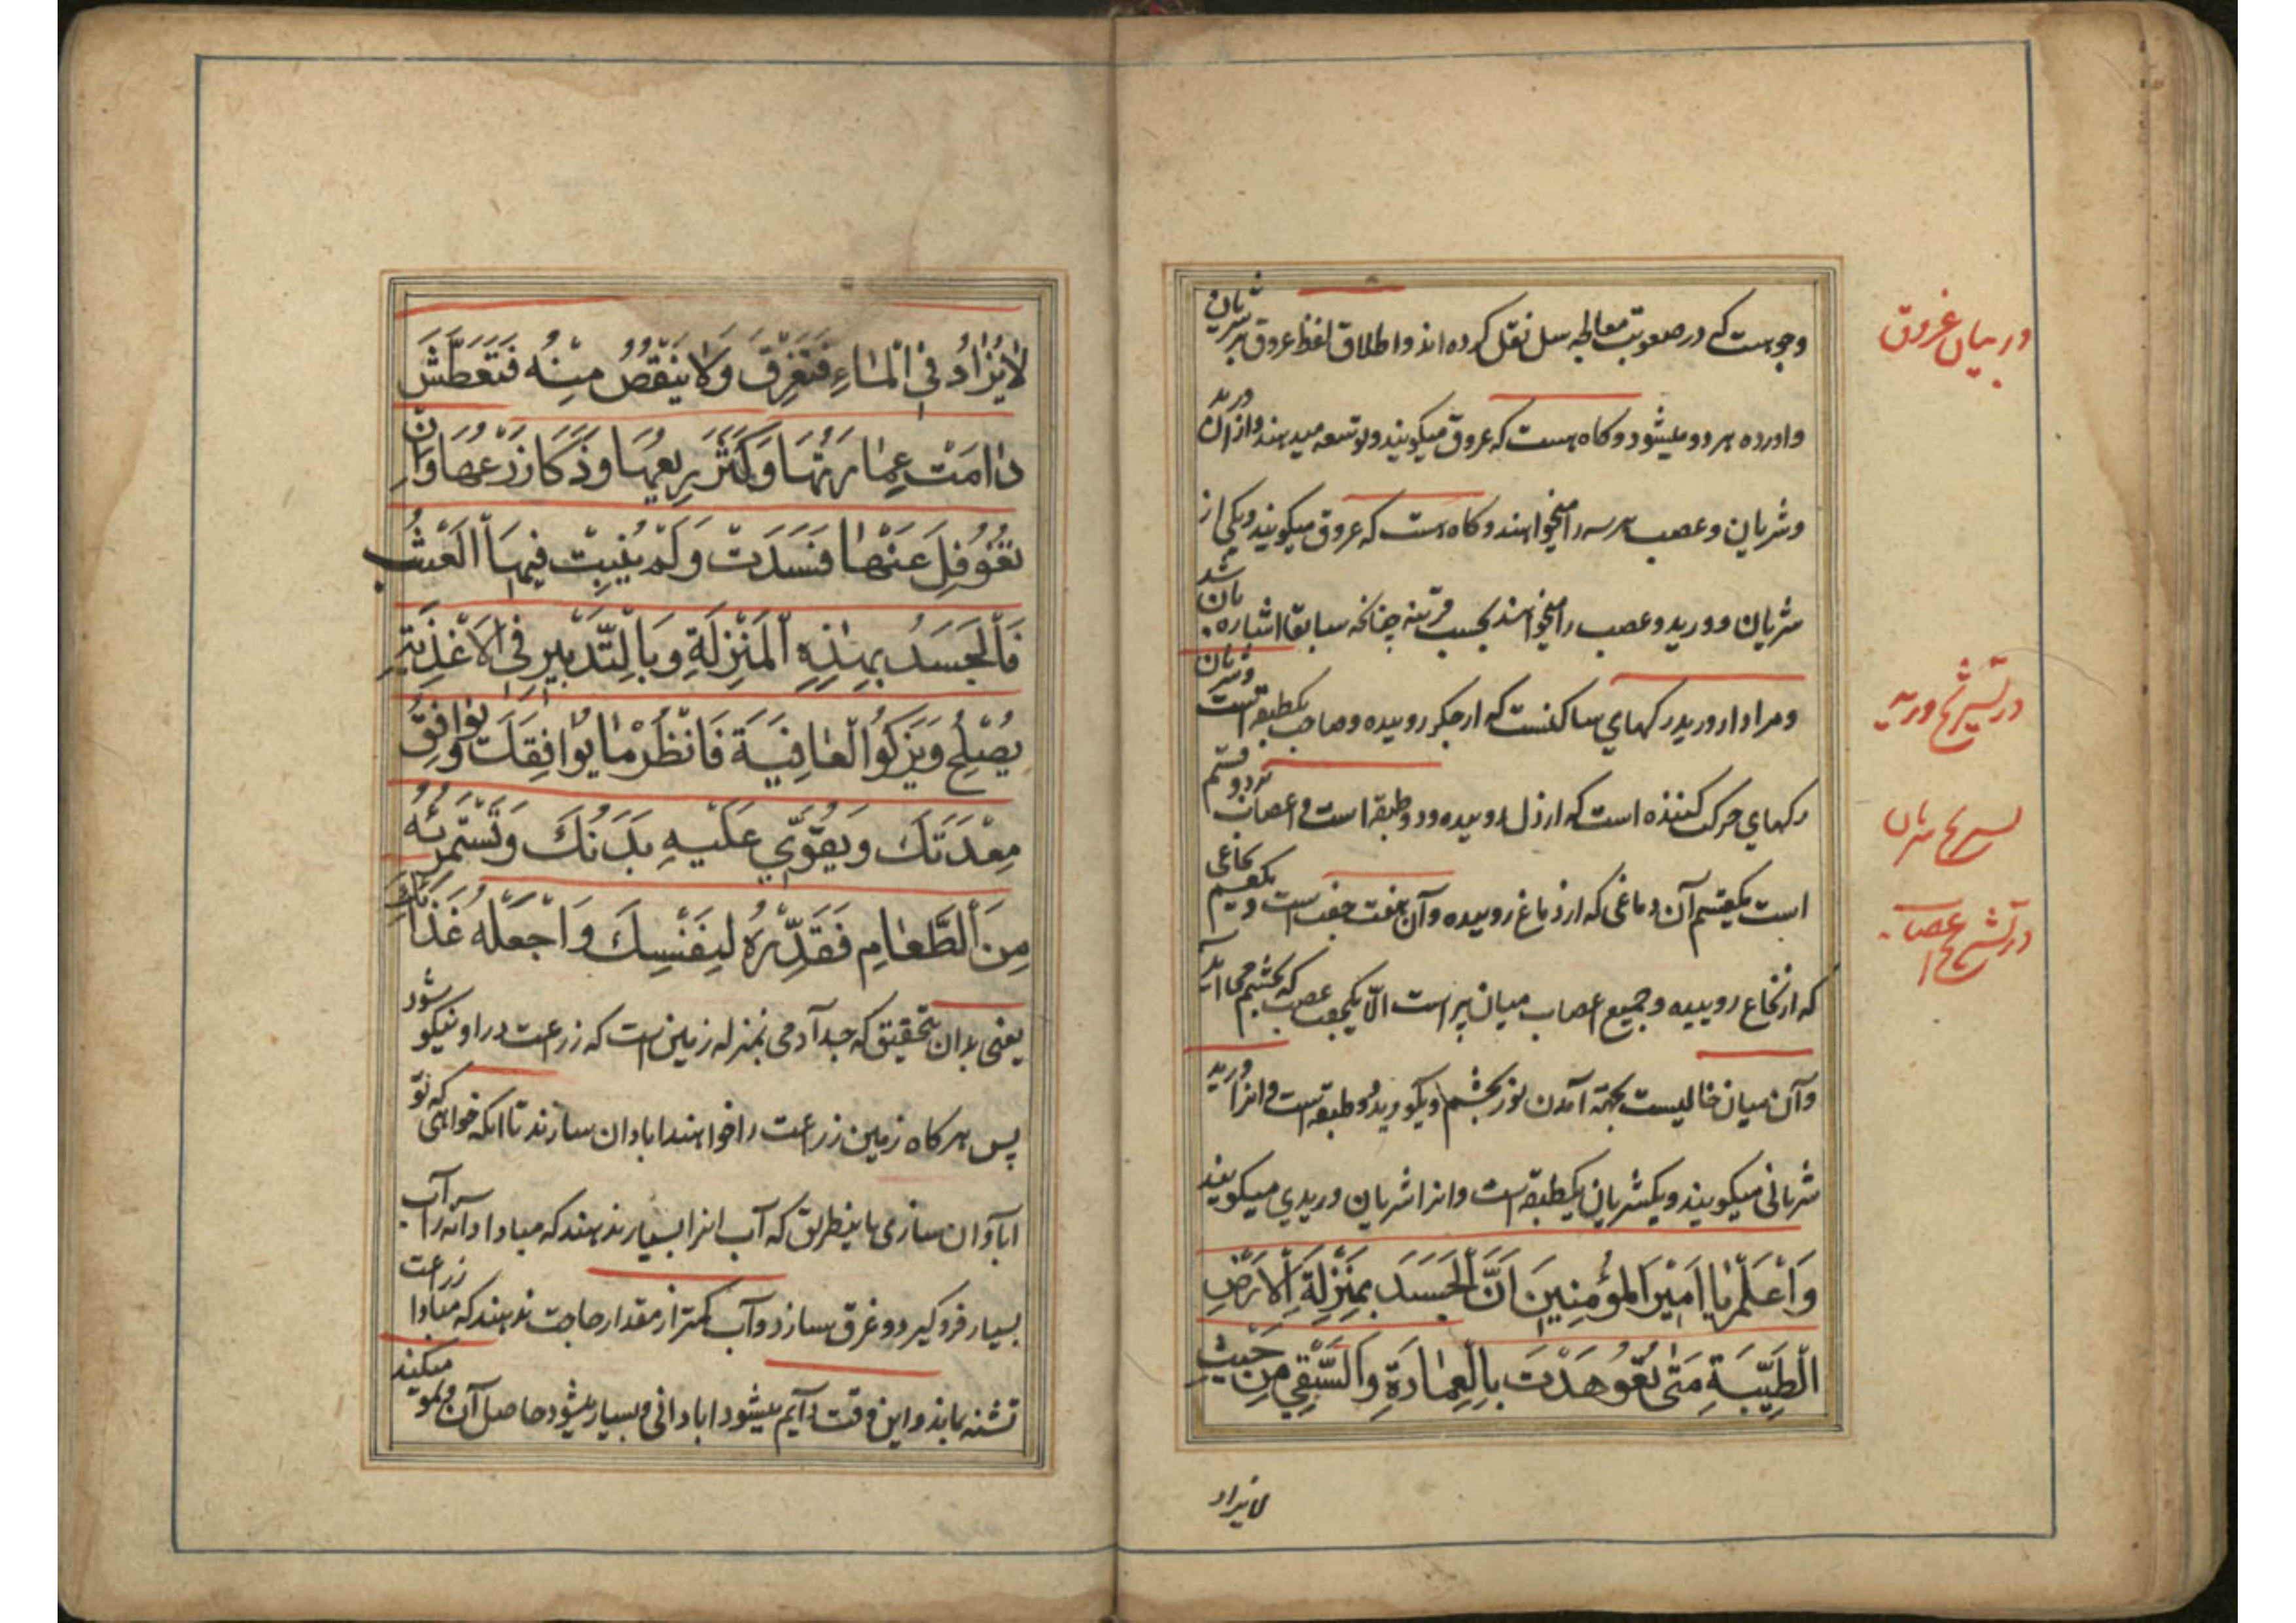 وجوهست که در صعوبت معالجه سل نقل کرده اند و اطلاق لفظ عروق بر شریان
در بیان عروق
و اورده هر دو میشود و کاه هست که عروق میکویند و توسعه میدهند و از آن ورید
و شریان و عصب هر سه را میخواهند و کاه هست که عروق میکویند و یکی از
شریان و ورید و عصب را میخواهند بحسب قرینه چنانکه سابقا اشاره بآن شد
و مراد از ورید رکهای ساکنست که از جکر روییده و صاحب یکطبقه است و شریان
در تشریح ورید
رکهای حرکت کننده است که از دل روییده و دو طبقه است و اعصاب بر دو قسم
تشریح شریان
است یکقسم آن دماغی که از دماغ روییده و آن هفت جفت است و یکقسم نخاعی
در تشریح اعصاب
که از نخاع روییده و جمیع اعصاب میان پر است الا یکجفت عصب که بچشم می آید
و آن میان خالیست بجهة آمدن نور بچشم و یکورید دو طبقه است و انرا ورید
شریانی میکویند و یکشریان یکطبقه است و انرا شریان وریدی میکویند
وَاعْلَمْ یٰا اَمیْرَ المؤْمِنینَ اَنَّ الْجَسَدَ بِمَنْزِلَةِ الْاَرْضِ
الطَّیِّبَةِ مَتیٰ تُعُوهِدَتْ بِالْعِمٰارَةِ وَالسَّقْیِ مِنْ حَیْثُ
لا یزاد
لٰا یُزٰادُ فِی الْمٰاءِ فَتَغْرَقَ وَلٰا یَنْقُصُ مِنْهُ فَتَعَطَّشَ
دٰامَتْ عِمٰارَتُهٰا وَکَثُرَ رِیعُهٰا وَزَکَا زَرْعُهٰا وَاِنْ
تُغُوفِلَ عَنْهٰا فَسَدَتْ وَلَمْ یَنْبِتْ فیهَا الْعُشْبُ
فَالْجَسَدُ بِهٰذِهِ الْمَنْزِلَةِ وَبِالتَّدْبیرِ فِی الْاَغْذِیَةِ
یَصْلَحُ وَیَزْکُوا الْعٰافِیَةُ فَانْظُرْ مٰا یُوٰافِقُکَ وَ یُوٰافِقُ
مِعْدَتَکَ وَیُقَوّی عَلَیْهِ بَدَنُکَ وَتَسْتَمْرِئُهُ
مِنَ الطَّعٰامِ فَقَدِّرْهُ لِنَفْسِکَ وَاجْعَلْهُ غَذٰائَکَ
یعنی بدان بتحقیق که جسد آدمی بمنزله زمین است که زرعت در او نیکو شود
پس هر کاه زمین زرعت را خواهند ابادان سازند تا انکه خواهی که تو
ابادان سازی باینطریق که آب انرا بسیار ندهند که مبادا دانه را آب
بسیار فرو کیرد و غرق سازد و آب کمتر از مقدار حاجت ندهند که مبادا زرعت
تشنه بماند و این وقت دایم میشود ابادانی و بسیار میشود حاصل آن و نمو میکند